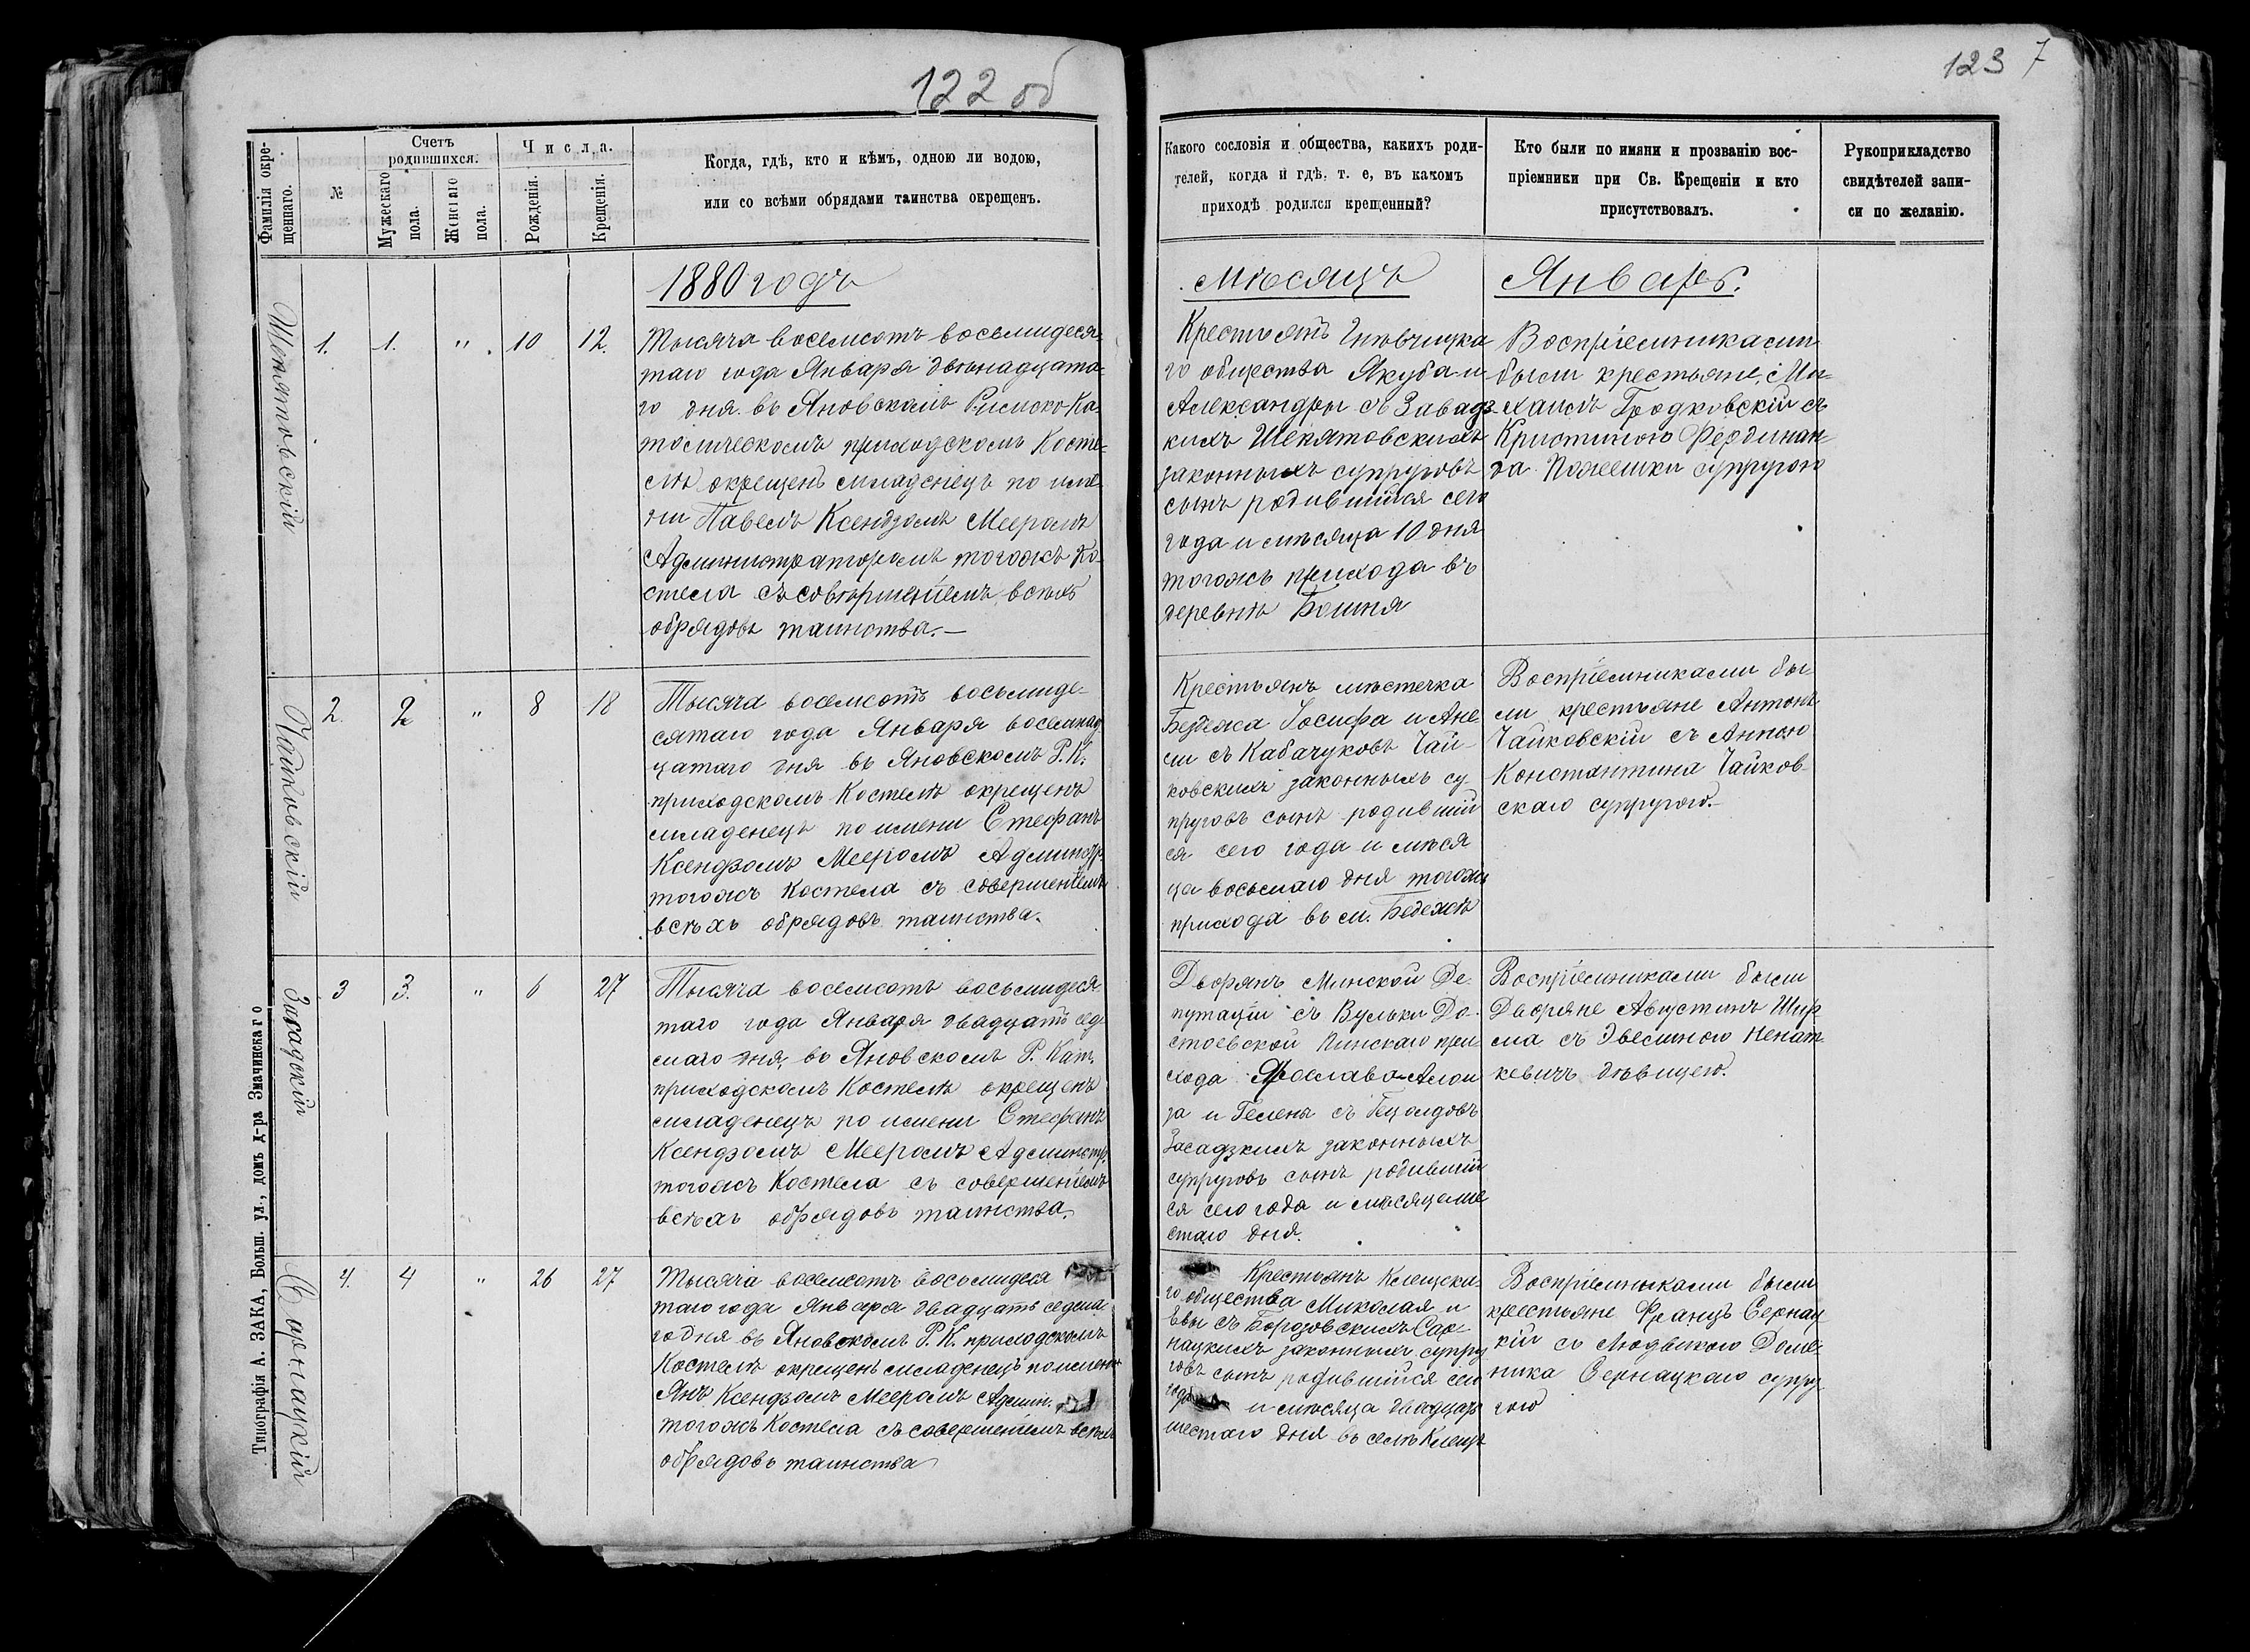 122 об
Фамилія окре-
щеннаго.
№
Счетъ
родившихся.
Мужескаго
пола.
Женскаго
пола.
Числа.
Рожденія.
Крещенія.
Когда, гдѣ, кто и кѣмъ, одною ли водою,
или со всѣми обрядами таинства окрещенъ.
1880 годъ
Шепятовскій
1. 1. " 10 12.
Тысяча восемсотъ восьмидеся-
таго года Января двѣнадцата-
го дня въ Яновскомъ Римско-Ка-
толическомъ приходскомъ Косте-
лѣ окрещенъ младенецъ по име-
ни Павелъ Ксендзомъ Мееромъ
Администраторомъ тогожъ Ко-
стела съ совершеніемъ всѣхъ
обрядовъ таинства.—
Чайковскій
2. 2 " 8 18
Тысяча восемсотъ восьмиде-
сятаго года Января восемнад
цатаго дня въ Яновскомъ Р. К.
приходскомъ Костелѣ окрещенъ
младенецъ по имени Стефанъ
Ксендзомъ Мееромъ Админстр.
тогожъ Костела съ совершеніемъ
всѣхъ обрядовъ таинства.
Засадскій
3 3. " 6 27
Тысяча восемсотъ восьмидеся
таго года Января двадцать сед-
маго дня, въ Яновскомъ Р. Кат.
приходскомъ Костелѣ окрещенъ
младенецъ по имени Стефанъ
Ксендзомъ Мееромъ Администр.
тогожъ Костела съ совершеніемъ
всѣхъ обрядовъ таинства.
Сарнацкій
4. 4 " 26 27
Тысяча восемсотъ восьмидеся
таго года Января двадцать седма
го дня въ Яновскомъ Р. К. приходскомъ
Костелѣ окрещенъ младенецъ по имени
Янъ Ксендзомъ Мееромъ Админ.
тогожъ Костела съ совершеніемъ всѣхъ
обрядовъ таинства
Типографія А. ЗАКА, Больш. ул., домъ д-ра Змачинскаго
123 7
Какого сословія и общества, какихъ роди-
телей, когда и гдѣ. т. е, въ какомъ
приходѣ родился крещенный?
Кто были по имяни и прозванію вос-
пріемники при Св. Крещеніи и кто
присутствовалъ.
Рукоприкладство
свидѣтелей запи-
си по желанію.
Мѣсяцъ
Январь.
Крестьянъ Гнѣвчицка
го общества Якуба и
Александры съ Завадз
кихъ Шепятовскихъ
законныхъ супруговъ
сынъ родившійся сего
года и мѣсяца 10 дня
тогожъ прихода въ
деревнѣ
Воспріемниками
были крестьяне, Ми-
хаилъ Гродковскій съ
Кристиною Фердинан-
да супругою
Крестьянъ мѣстечка
Бездежа Іосифа и Ане
ли съ Кабачуковъ Чай-
ковскихъ законныхъ су
пруговъ сынъ родившій
ся сего года и мѣся
ца восьмаго дня тогожъ
прихода въ м. Бездежѣ
Воспріемниками бы-
ли крестьяне Антонъ
Чайковскій съ Анною
Константина Чайков-
скаго супругою.—
Дворянъ Минской Де-
путаціи съ Вульки До-
стоевской Пинскаго при-
хода Ярослава-Алои
за и Гелены съ
Засадзкихъ законныхъ
супруговъ сынъ родившій
ся сего года и мѣсяца ше
стаго дня.
Воспріемниками были
Дворяне Августинъ Шир
ма съ Эвелиною Ненат-
кевичъ дѣвицею.
Крестьянъ Клещска-
го общества Миколая и
Евы съ Борозовскихъ Сар-
нацкихъ законныхъ супру
говъ сынъ родившійся сего
года и мѣсяца двадцать
шестаго дня въ селѣ Клещ
Воспріемниками были
крестьяне Францъ Сернац
кій съ Людвикою Доме-
ника Сернацкаго супру
гою